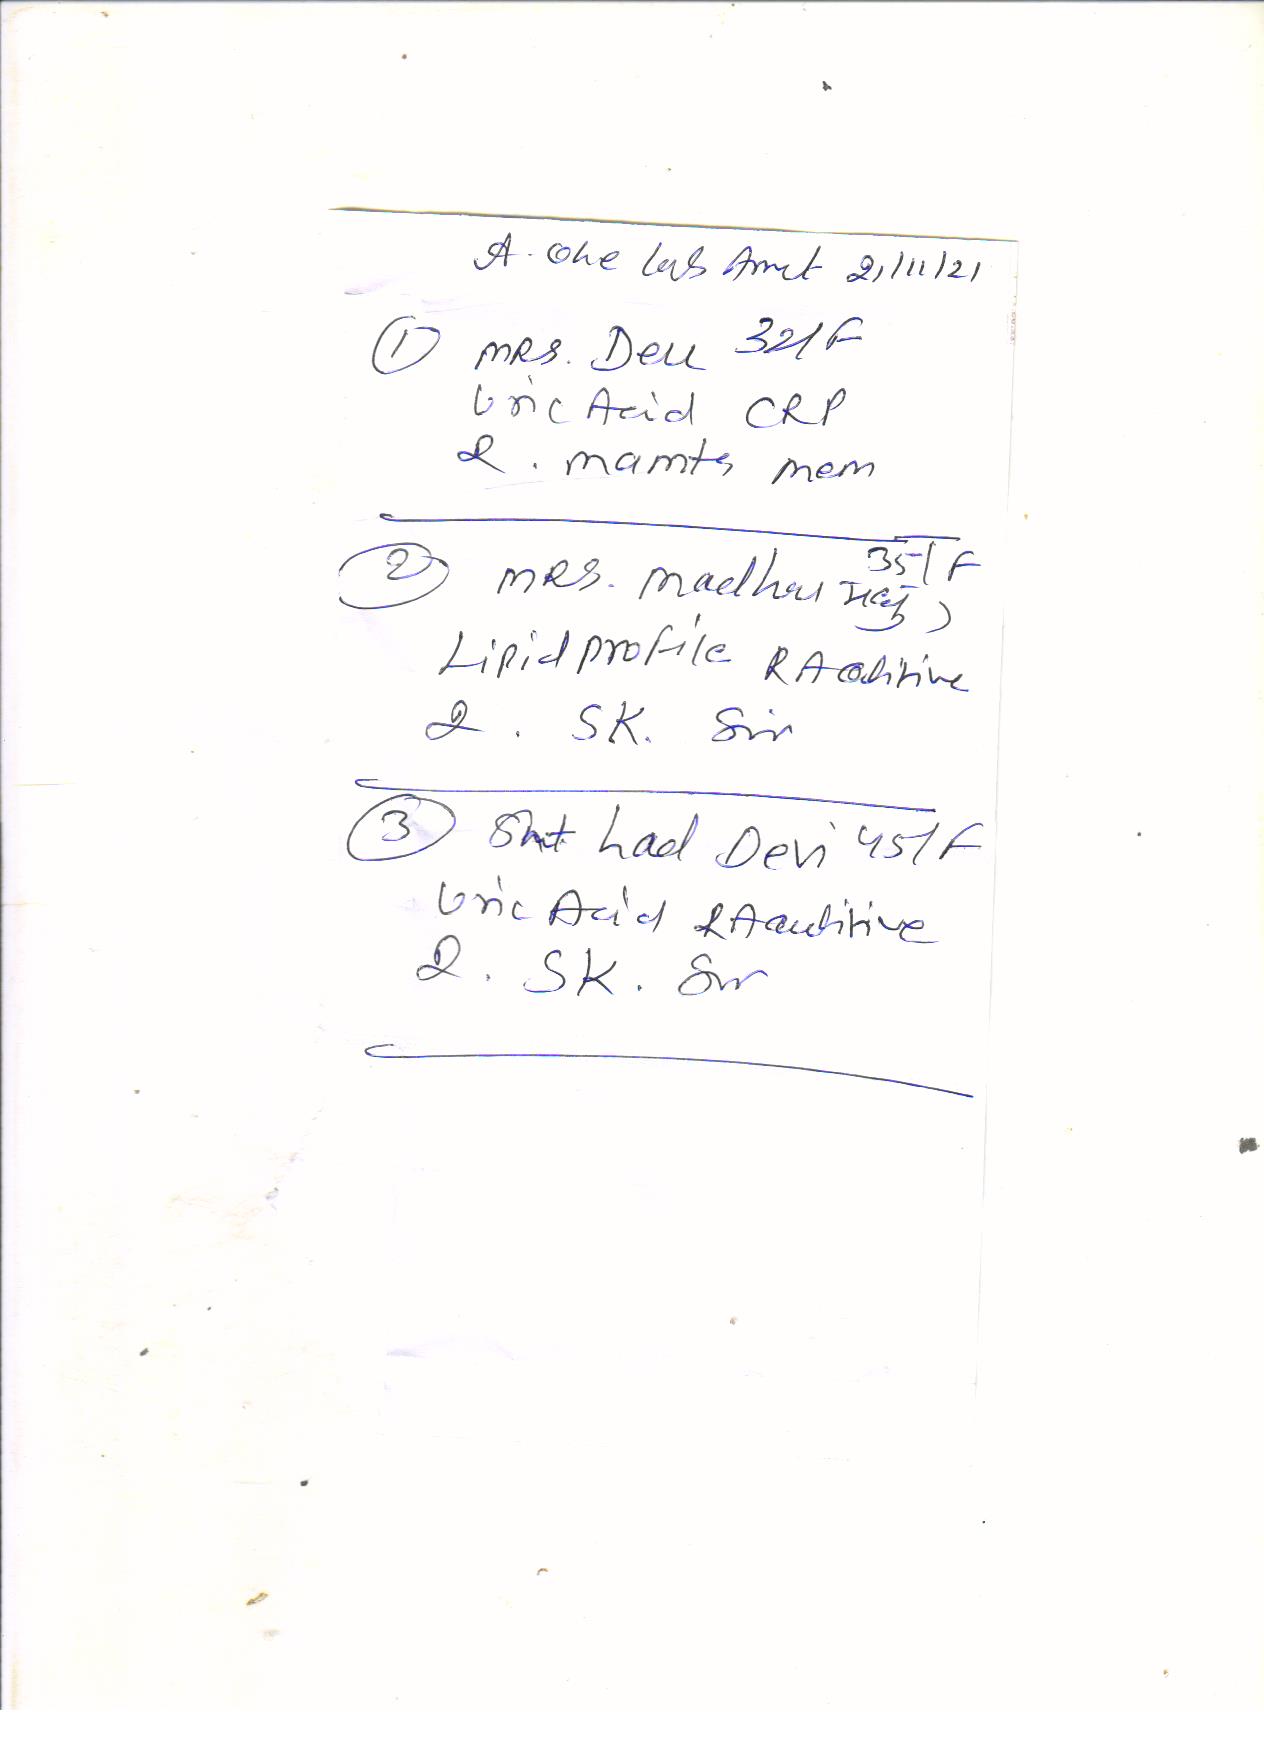 A. One Lab Amet 21/11/21
① MRS. Deu 32/F
Uric Acid CRP
R. mamta mem
② MRS. madhu 35/F
Lipid profile RA
R. SK. Sir
③ Smt Lad Devi 45/F
Uric Acid RA
R. SK. Sir